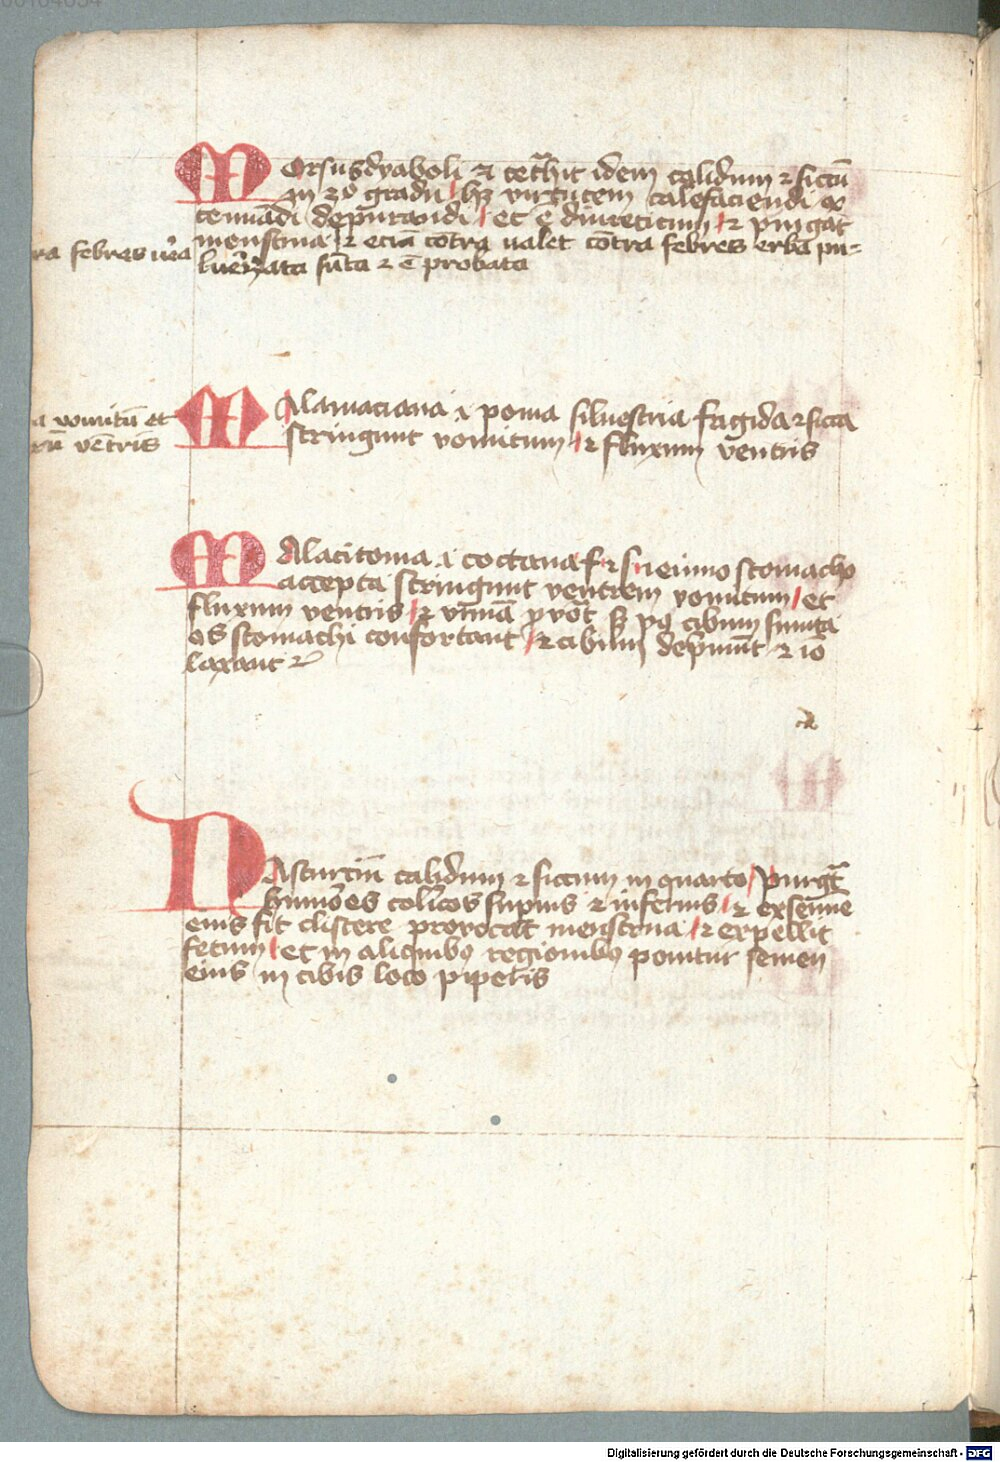 Morsus dyaboli et tetrahit idem calidum et siccum
in 2o gradu hz virtutem calefaciendi ex
tenuādi depurandi et ē diureticum et purgat
ra febres
menstrua et eciā cōtra valet cōtra febres erba pu-
luerizata sūta et ē probata
a vomitū et
ventris
Malamaciana .i. poma siluestria frigida et sicca
stringunt vomitum et fluxum ventris
Malacitonia .i. coctana f et s ieiuno stomacho
accepta stringunt ventrem vomitum et
fluxum ventris et vrinā ꝓvocāt sz pꝰ cibum sumpta
os stomachi confortant et cibum deprimūt et io
laxant et
Nasturciū calidum et siccum in quarto purgat
humores colicos superius et inferius et ex semine
eius fit clistere provocat menstrua et expellit
fetum et in aliquibꝰ regionibꝰ ponitur semen
eius in cibis loco piperis
Digitalisierung gefördert durch die Deutsche Forschungsgemeinschaft - DFG